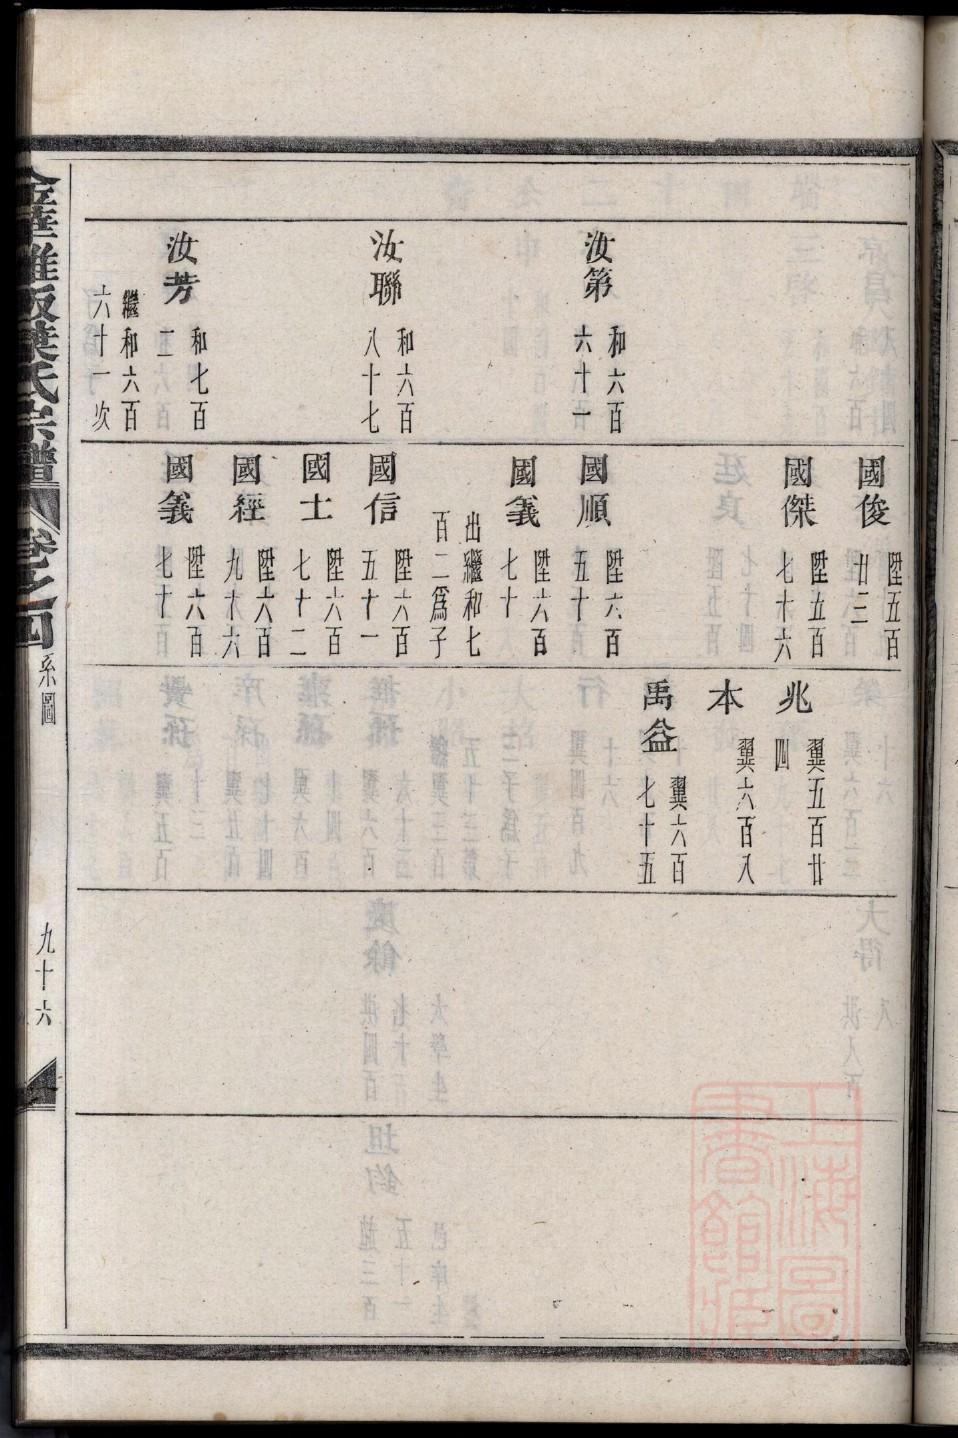 汝第
和六百
六十一
汝聯
和六百
八十七
汝芳
和七百
二
繼和六百
六十一次
國俊
陞五百
廿三
國傑
陞五百
七十六
國順
陞六百
五十
國義
陞六百
七十
出繼和七
百二爲子
國信
陞六百
五十一
國士
陞六百
七十二
國經
陞六百
九十六
國義
陞六百
七十
兆
翼五百廿
四
本
翼六百八
禹益
翼六百
七十五
金華雅畈葉氏宗譜
卷之四
系圖
九十六
上海圖
書館藏